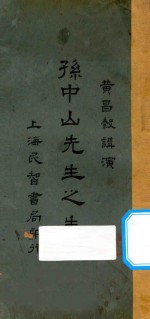 黃昌穀講演
孫中山先生之生
上海民智書局發行